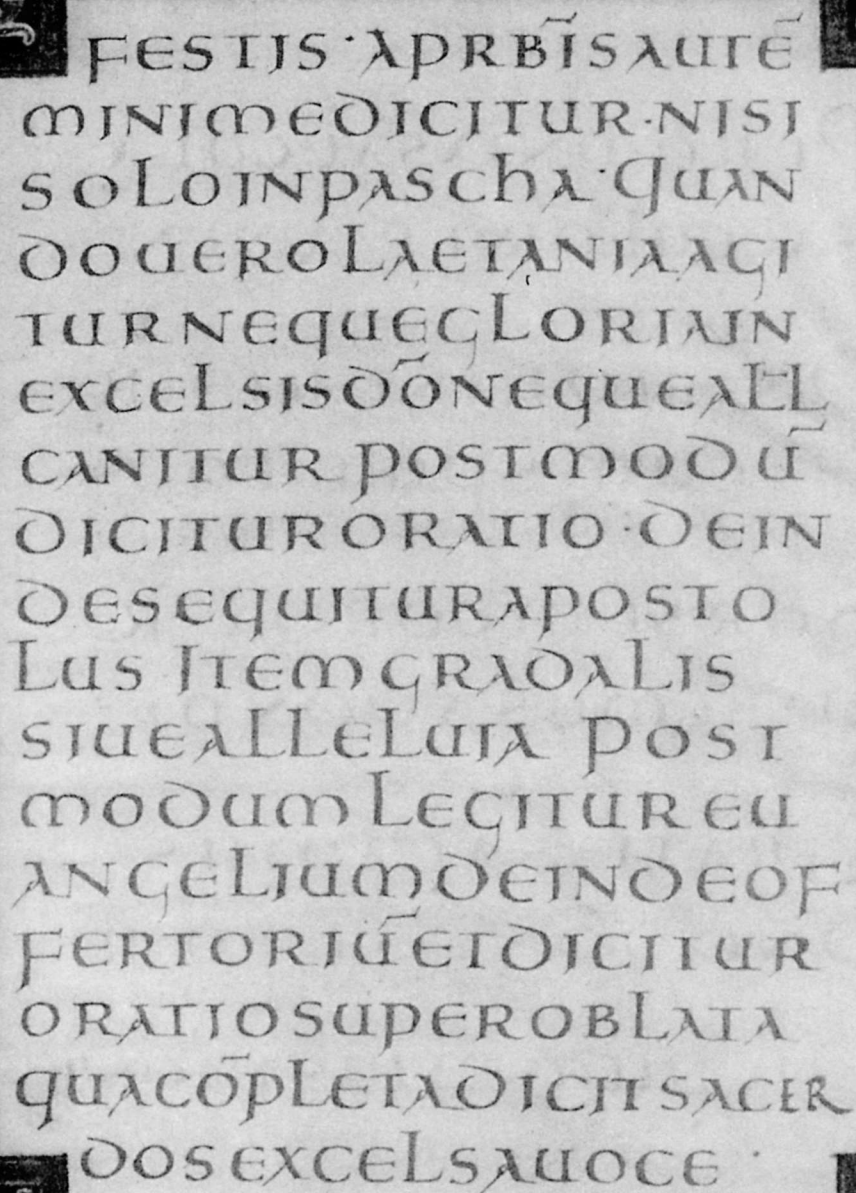 FESTIS · APRBĪS AUTĒ
MINIME DICITUR · NISI
SOLO IN PASCHA · QUAN
DO UERO LAETANIA AGI
TUR NEQUE GLORIA IN
EXCELSIS DŌ NEQUE ALL
CANITUR POSTMODŪ
DICITUR ORATIO · DEIN
DE SEQUITUR APOSTO
LUS ITEM GRADALIS
SIUE ALLELUIA POST
MODUM LEGITUR EU
ANGELIUM DEINDE OF
FERTORIŪ ET DICITUR
ORATIO SUPER OBLATA
QUA CŌPLETA DICIT SACER
DOS EXCELSA UOCE ·